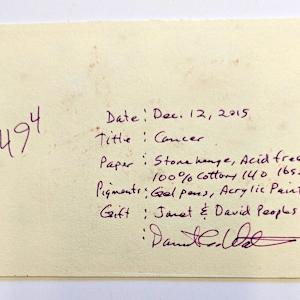 494
Date: Dec. 12, 2015
Title: Cancer
Paper: Stonehenge, Acid free
100% Cotton, 140 lbs.
Pigments: Gel pens, Acrylic Paint
Gift: Janet & David Peoples